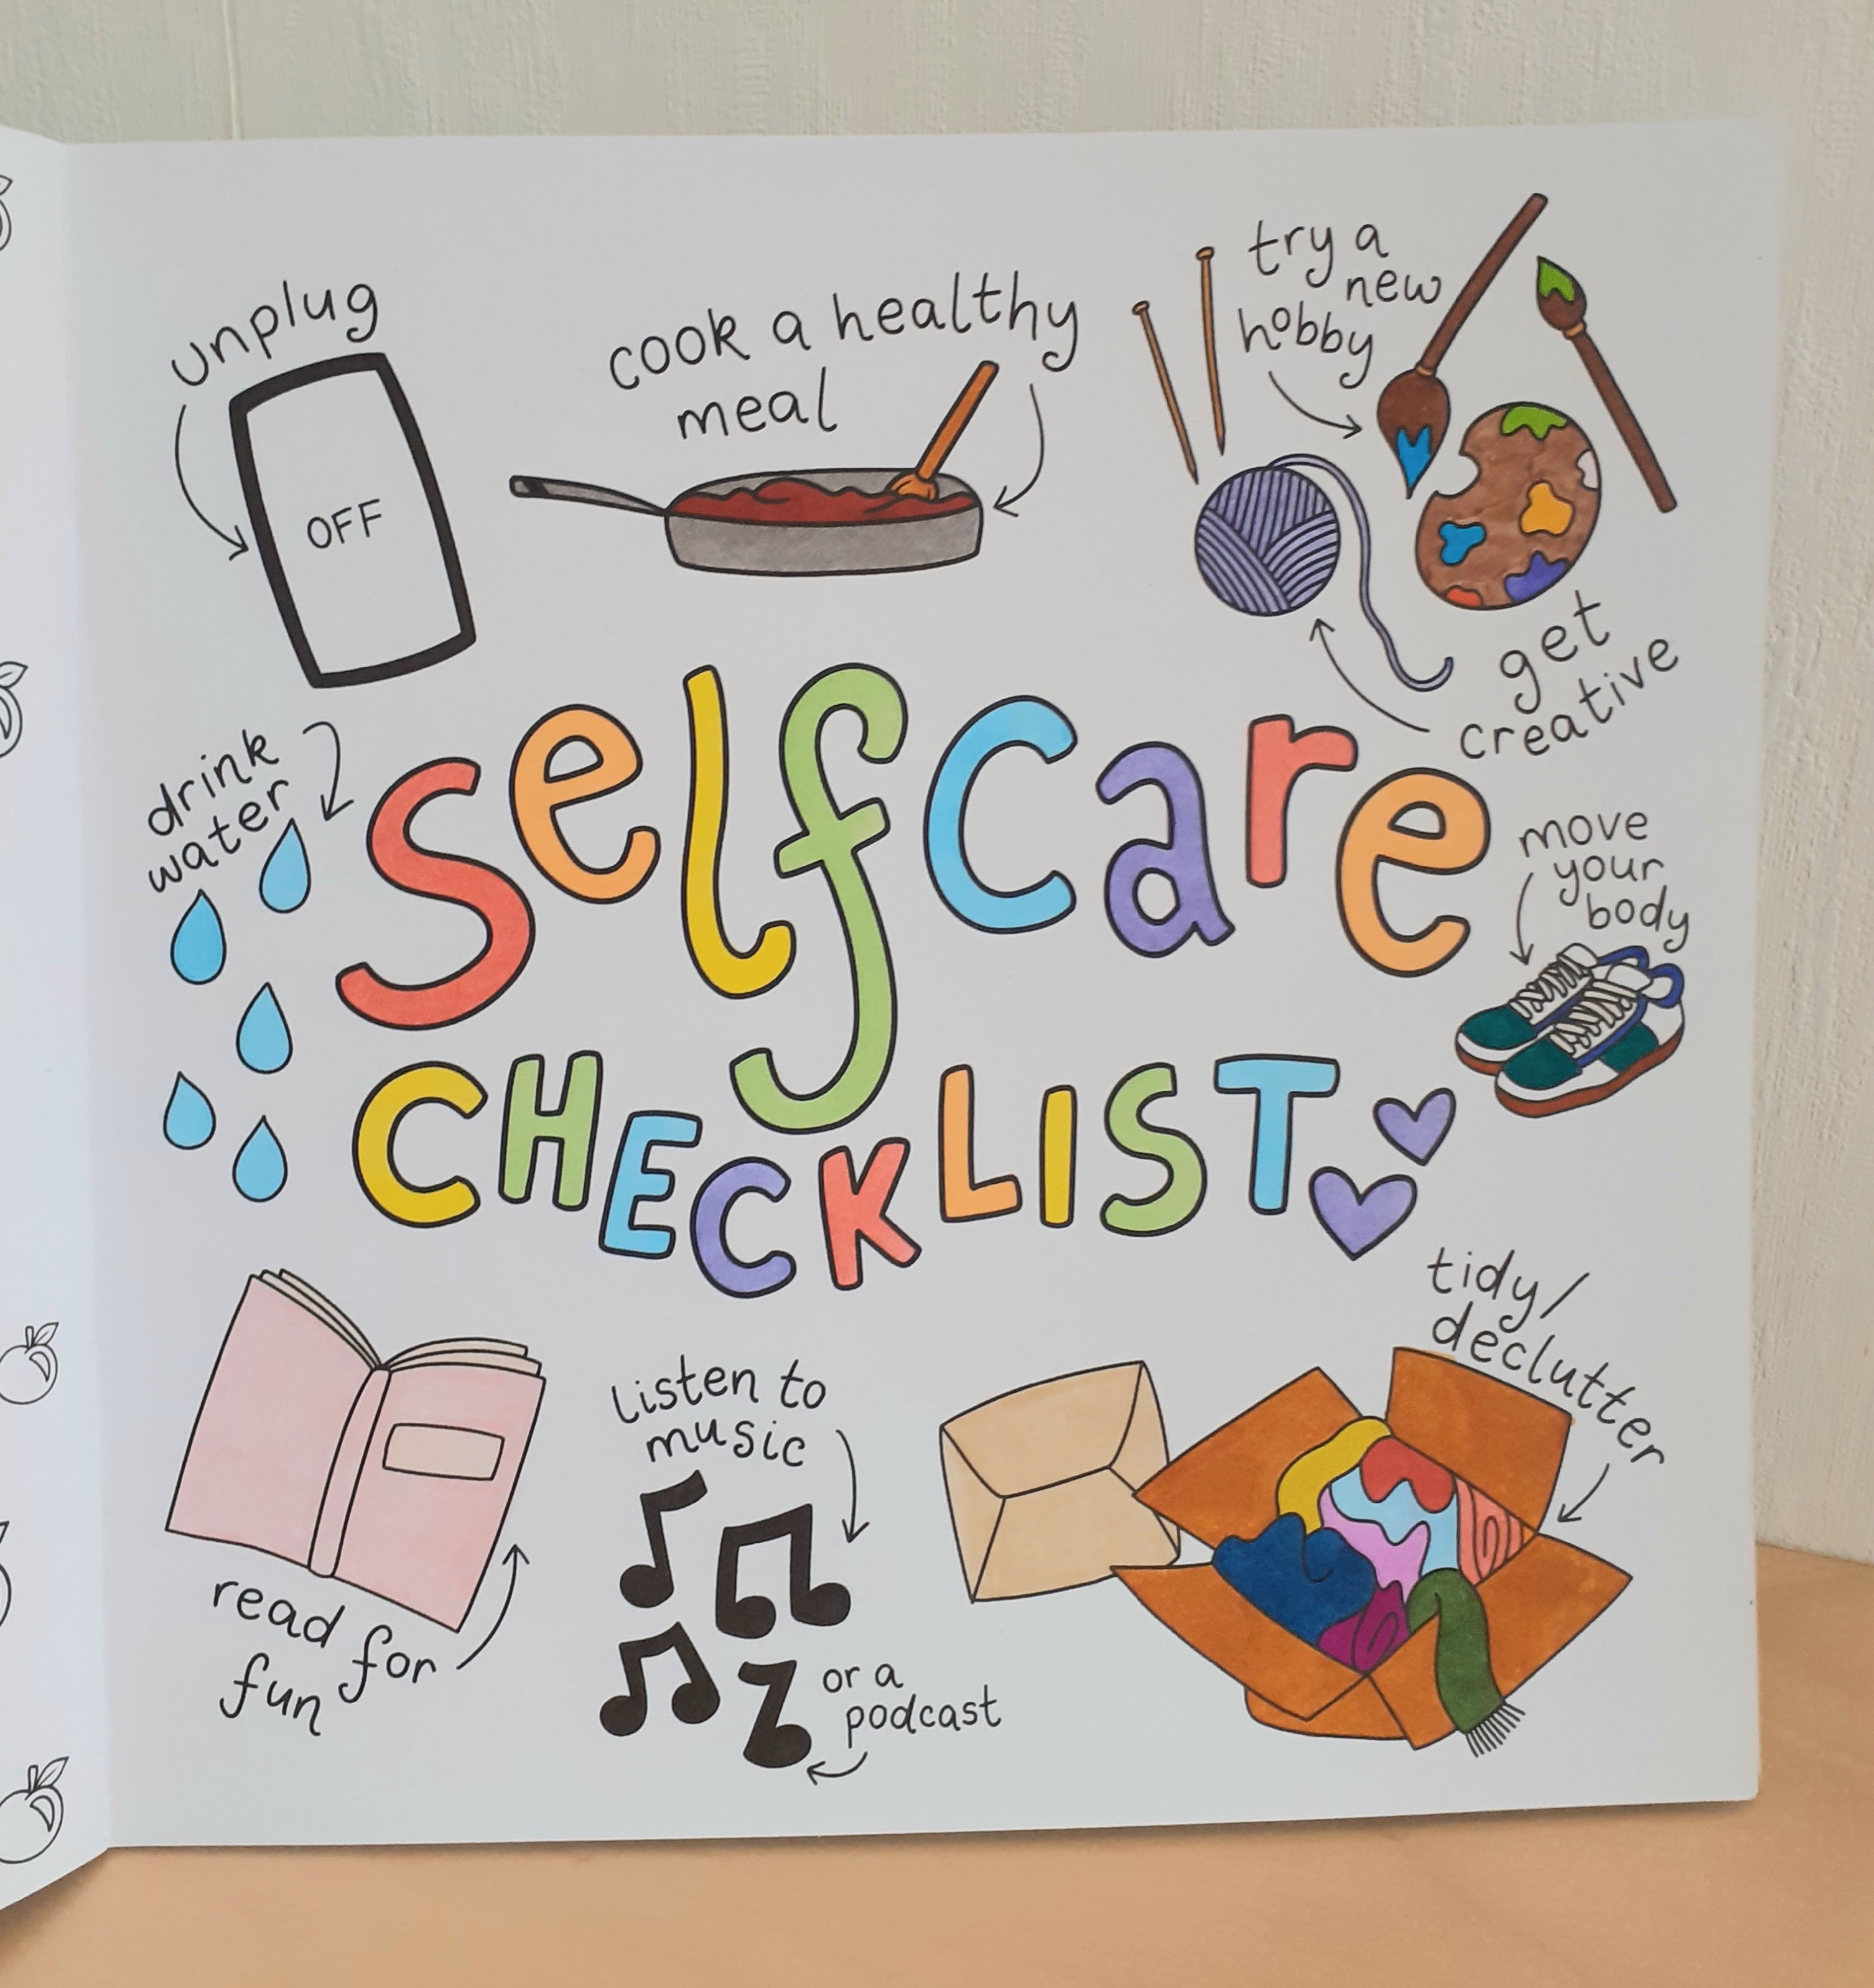 unplug
OFF
cook a healthy
meal
try a
new
hobby
get
creative
drink
water
selfcare
CHECKLIST
move
your
body
read for
fun
listen to
music
or a
podcast
tidy/
declutter